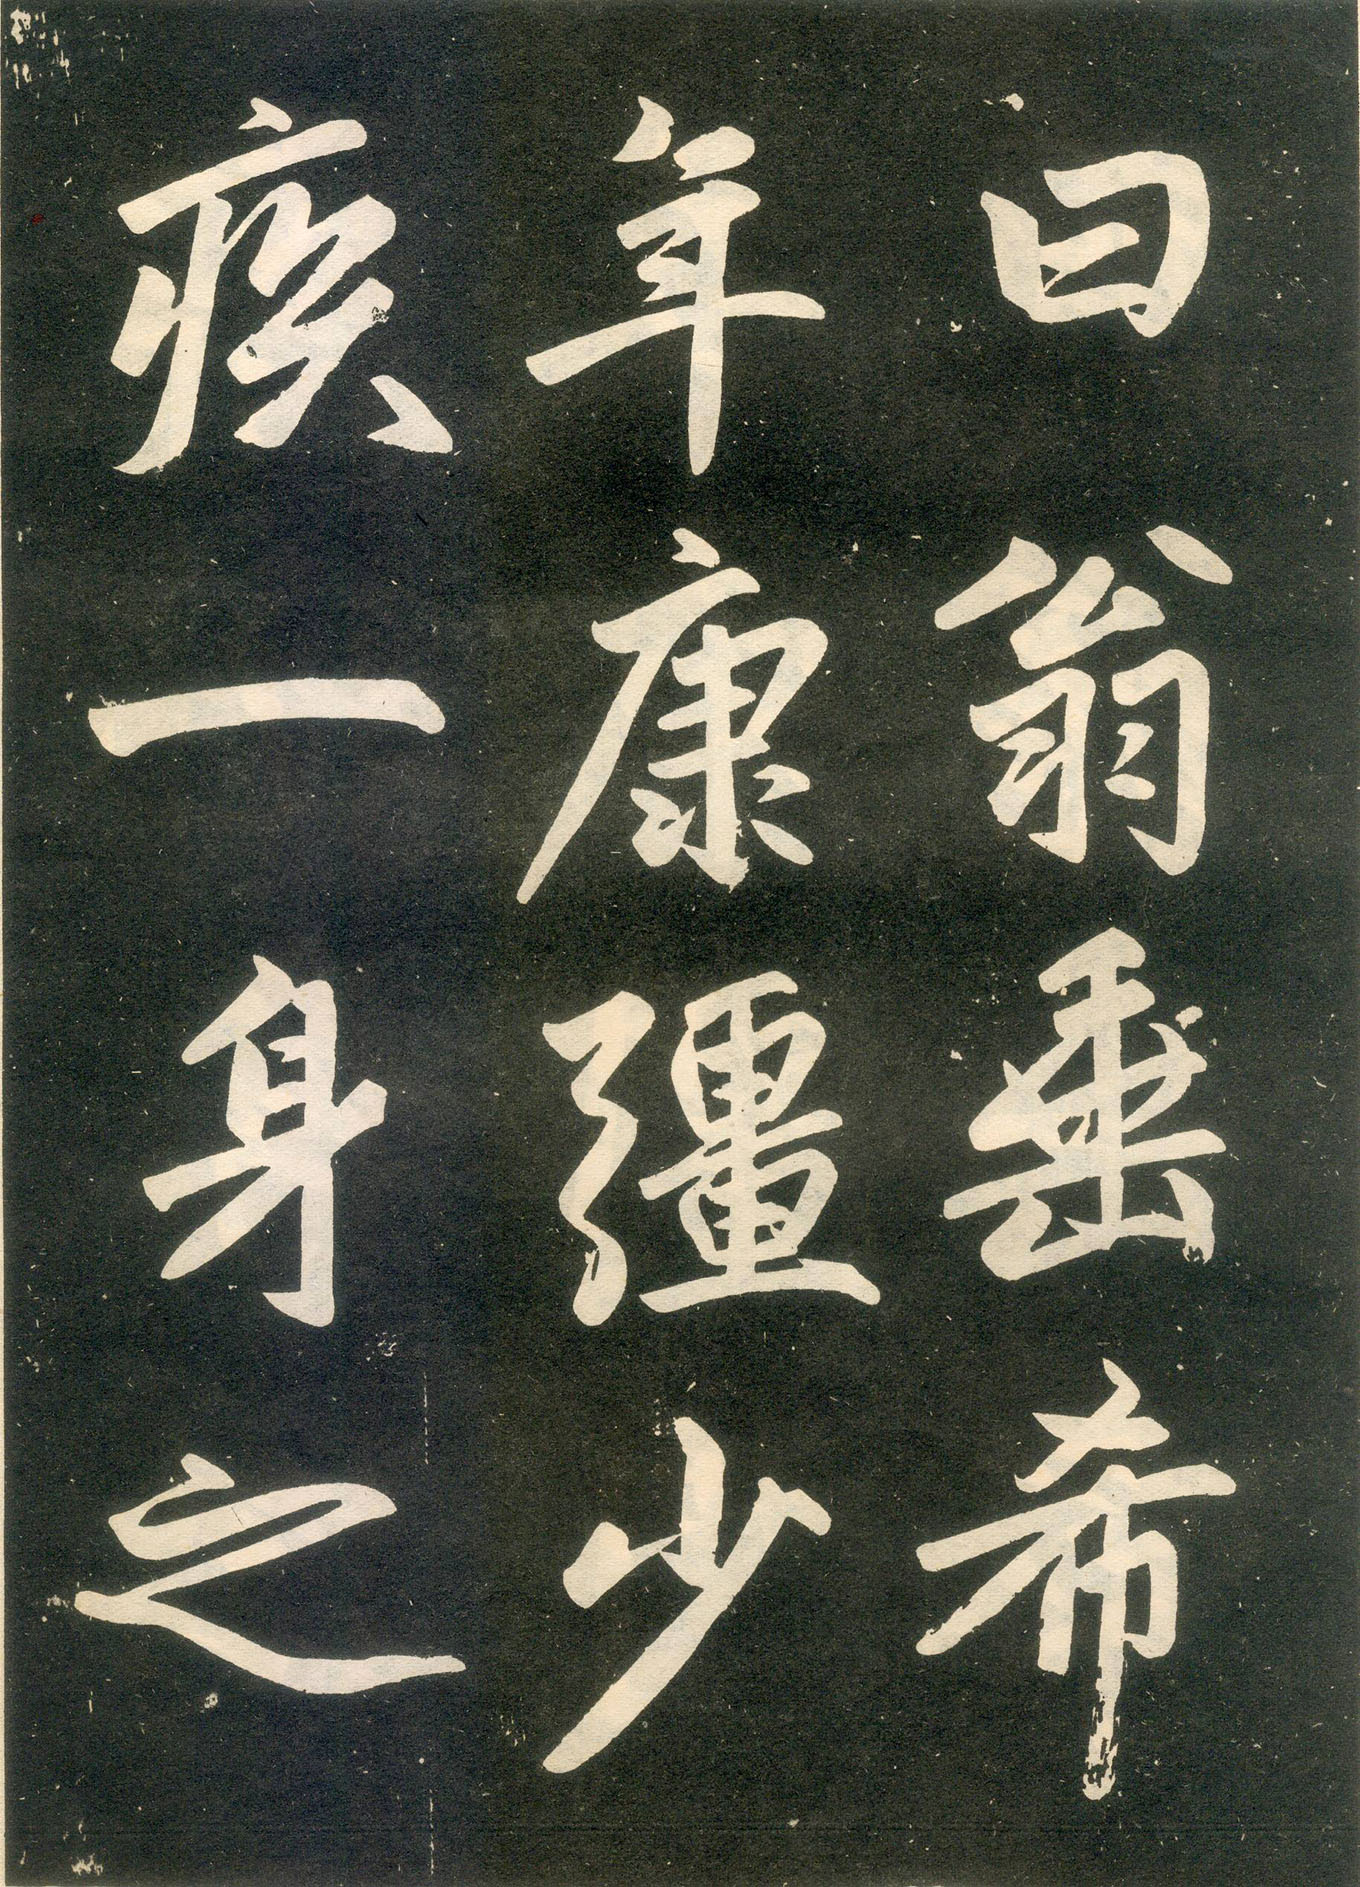 曰翁垂希
年康彊少
疾一身之